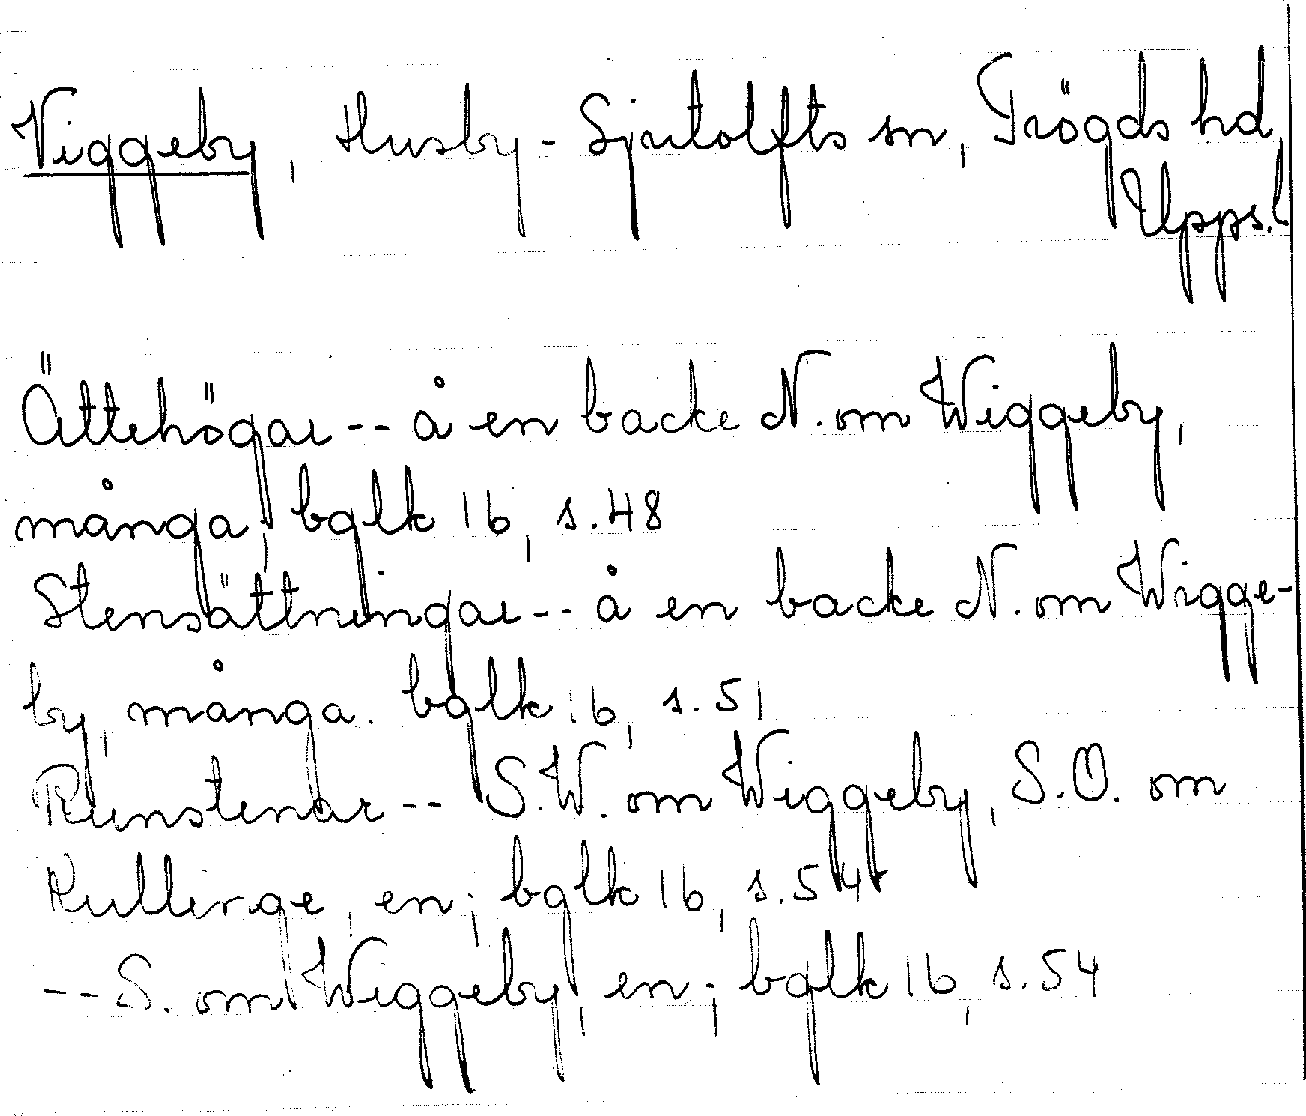 Viggeby, Husby-Sjutolfts sn, Trögds hd,
Upps.l
Ättehögar -- å en backe N. om Wiggeby,
många; bglk 16, s.48
Stensättningar -- å en backe N. om Wigge-
by, många. bglk 16, s.51
Runstenar -- S.W. om Wiggeby, S.O. om
Kullinge, en; bglk 16, s.54
-- S. om Wiggeby, en; bglk 16, s.54